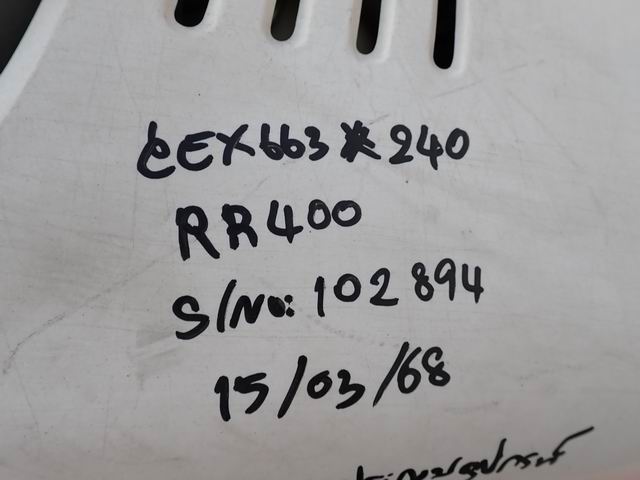 CEX663*240
RR400
S/No: 102894
15/03/68